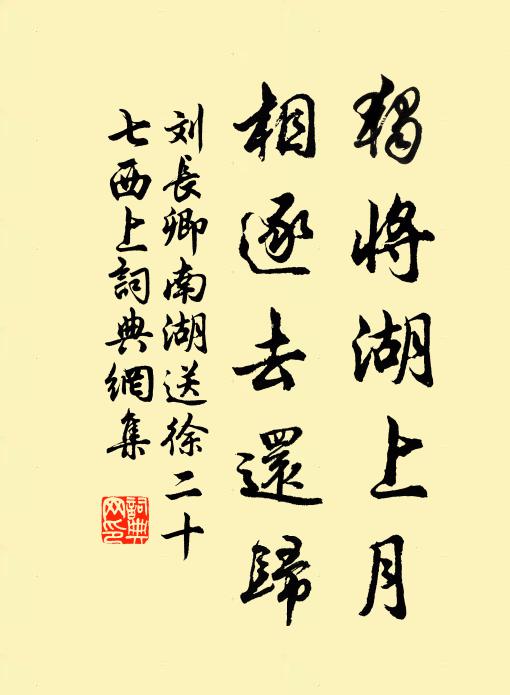 獨將湖上月
相逐去還歸
刘長卿南湖送徐二十
七西上詞典網集
詞典網印